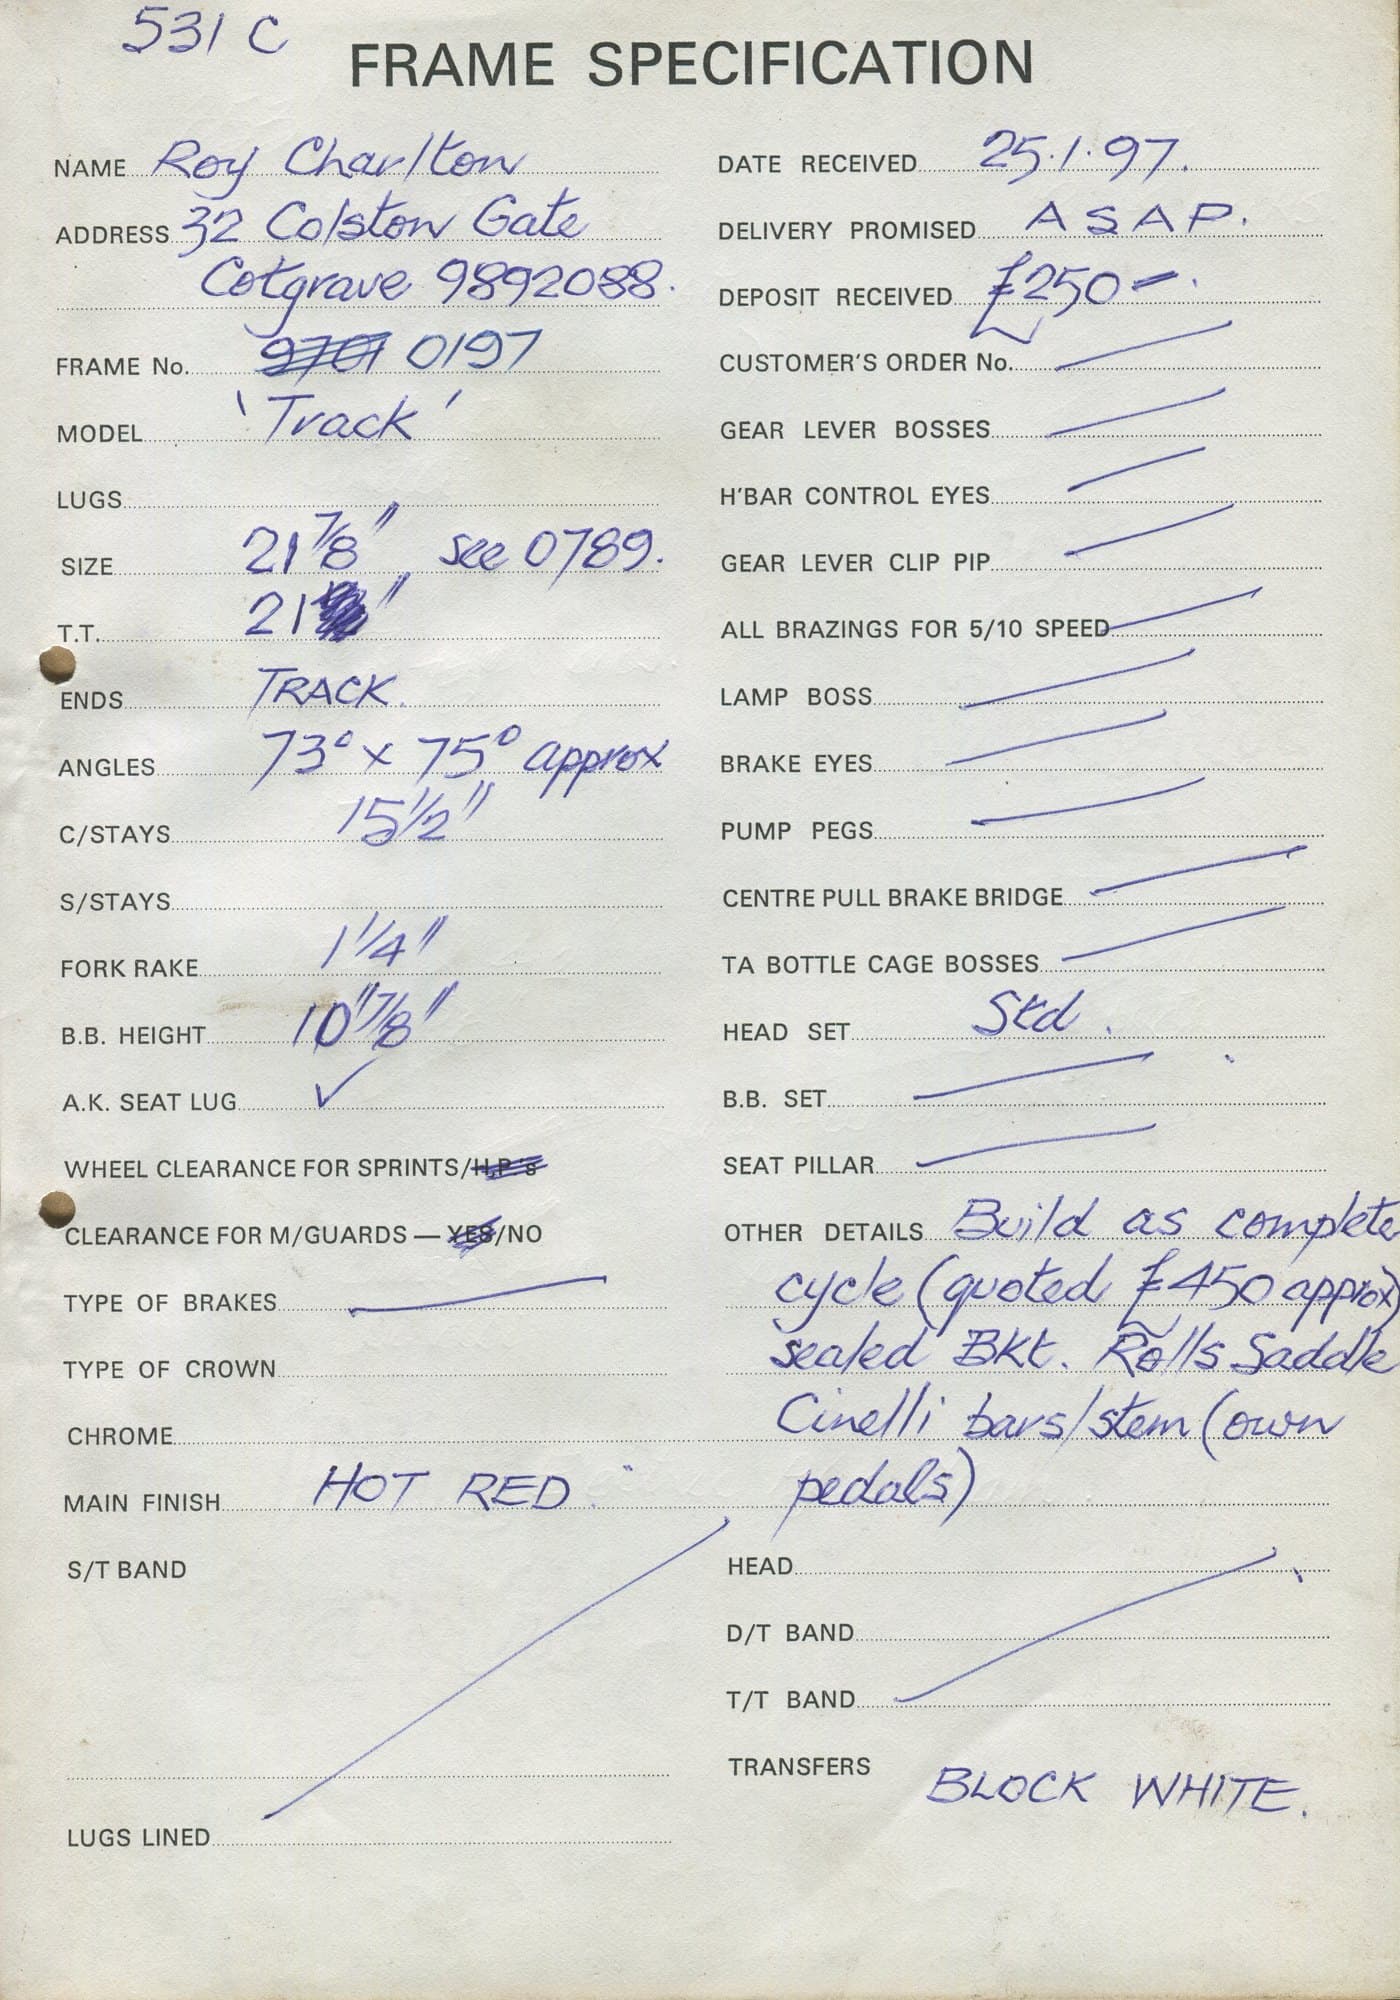 531 C
FRAME SPECIFICATION
NAME Roy Charlton
ADDRESS 32 Colston Gate
Cotgrave 9892088.
FRAME No. 9701 0197
MODEL 'Track'
LUGS
SIZE 21 7/8" see 0789.
T.T. 21"
ENDS TRACK.
ANGLES 73° x 75° approx
C/STAYS 15 1/2"
S/STAYS
FORK RAKE 1 1/4"
B.B. HEIGHT 10" 7/8"
A.K. SEAT LUG ✓
WHEEL CLEARANCE FOR SPRINTS/H.P's
CLEARANCE FOR M/GUARDS — YES/NO
TYPE OF BRAKES
TYPE OF CROWN
CHROME
MAIN FINISH HOT RED
S/T BAND
LUGS LINED
DATE RECEIVED 25.1.97.
DELIVERY PROMISED ASAP.
DEPOSIT RECEIVED £250 –
CUSTOMER'S ORDER No.
GEAR LEVER BOSSES
H'BAR CONTROL EYES
GEAR LEVER CLIP PIP
ALL BRAZINGS FOR 5/10 SPEED
LAMP BOSS
BRAKE EYES
PUMP PEGS
CENTRE PULL BRAKE BRIDGE
TA BOTTLE CAGE BOSSES
HEAD SET Std.
B.B. SET
SEAT PILLAR
OTHER DETAILS Build as complete
cycle (quoted £450 approx)
sealed BKt. Rolls Saddle
Cinelli bars/stem (own
pedals)
HEAD
D/T BAND
T/T BAND
TRANSFERS BLOCK WHITE.